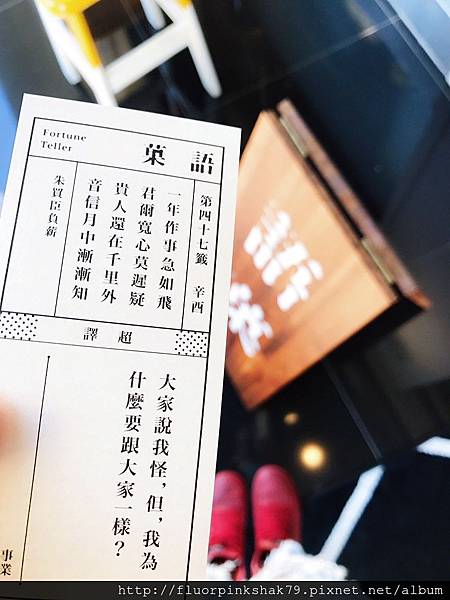 Fortune
Teller
語菓
第四十七籤　辛酉
一年作事急如飛
君爾寬心莫遲疑
貴人還在千里外
音信月中漸漸知
朱買臣負薪
超譯
大家說我怪，但，我為
什麼要跟大家一樣？
事業
http://fluorpinkshak79.pixnet.net/album